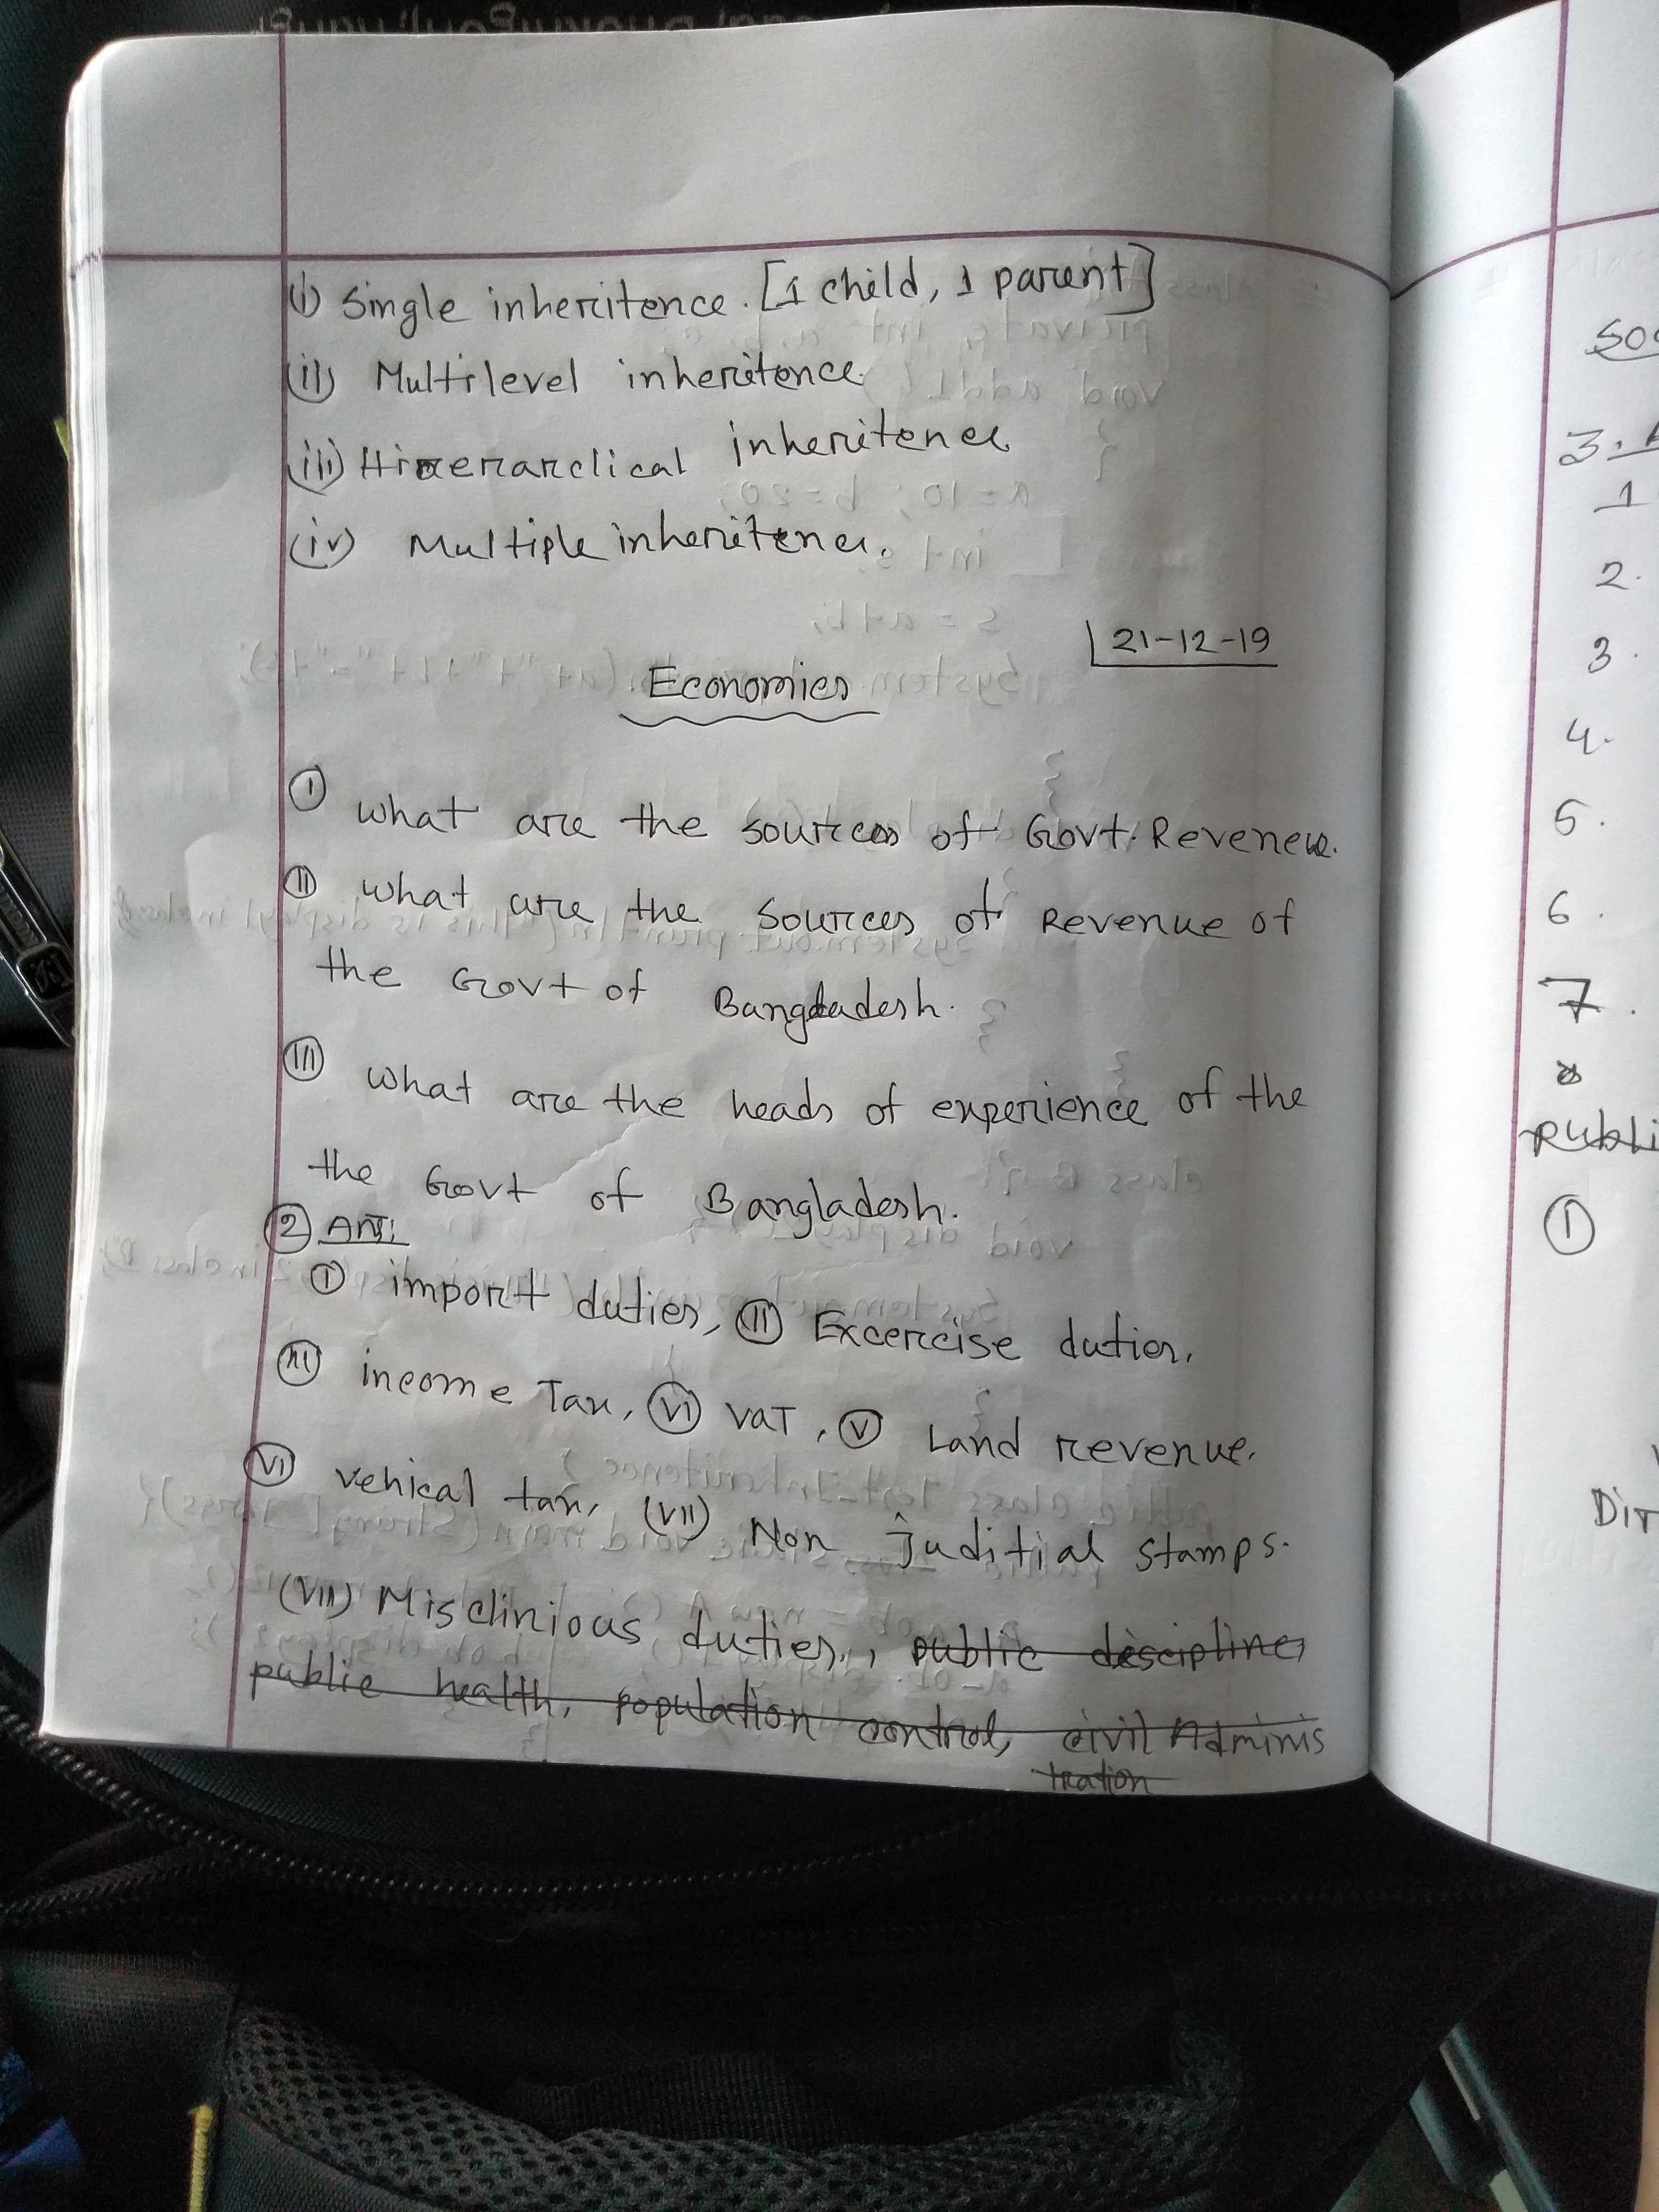 (i) Single inheritence. [1 child, 1 parent]
(ii) Multilevel inheritence.
(iii) Hirerarclical inheritence
(iv) Multiple inheritence.
21-12-19
Economics
(I) what are the sources of Govt. Revenew.
(II) what are the sources of Revenue of
the Govt of Bangladesh.
(III) what are the heads of experience of the
the Govt of Bangladesh.
(2) Ans:
(I) import duties, (II) Excercise duties.
(III) income Tax, (VI) VAT, (V) Land revenue.
(VI) vehical tax, (VII) Non juditial stamps.
(VIII) Misclinious duties., public descipline,
public health, population control, civil Adminis
tration
3.
1
2.
3.
4.
5.
6.
7.
8
publi
(1)
Dir